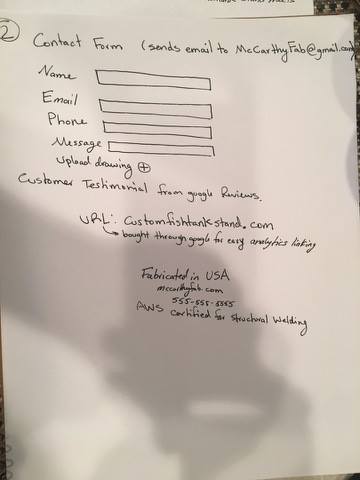 2
Contact Form (sends email to McCarthyFab@gmail.com)
Name
Email
Phone
Message
Upload drawing
Customer Testimonial from google Reviews.
URL: Customfishtankstand.com
bought through google for easy analytics linking
Fabricated in USA
mccarthyfab.com
555-555-5555
AWS Certified for Structural Welding